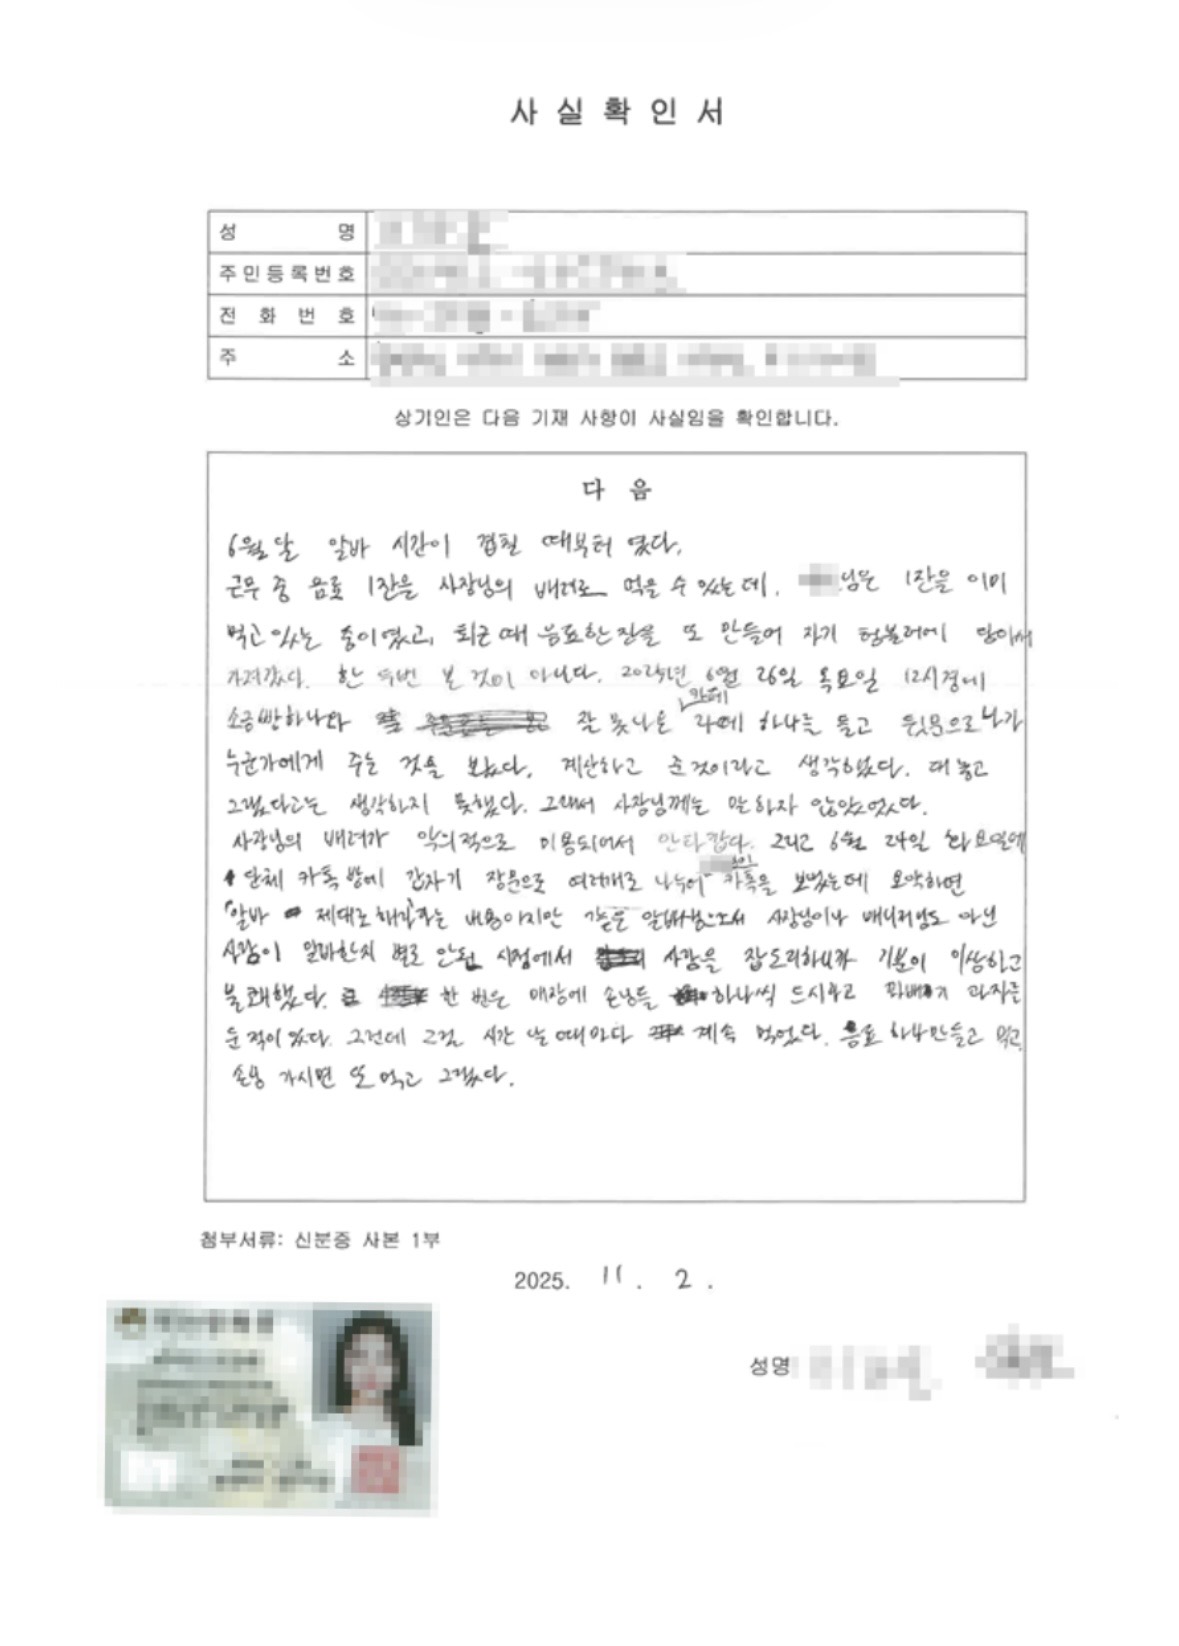 사 실 확 인 서
성 명
주민등록번호
전 화 번 호
주 소
상기인은 다음 기재 사항이 사실임을 확인합니다.
다 음
6월달 알바 시간이 겹칠 때부터 였다.
근무 중 음료 1잔을 사장님의 배려로 먹을 수 있는데, 님은 1잔을 이미
먹고 있는 중이였고, 퇴근 때 음료한잔을 또 만들어 자기 텀블러에 담아서
가져갔다. 한 두번 본 것이 아니다. 2025년 6월 26일 목요일 12시경에
소금빵하나와 잘못나온 카페 라떼 하나를 들고 뒷문으로 나가
누군가에게 주는 것을 보았다. 계산하고 준것이라고 생각하였다. 대놓고
그랬다고는 생각하지 못했다. 그래서 사장님께는 말하지 않았었다.
사장님의 배려가 악의적으로 이용되어서 안타깝다. 그리고 6월 24일 화요일에
단체 카톡방에 갑자기 장문으로 여러개로 나누어 카톡을 보냈는데 요약하면
'알바 제대로 해라'라는 내용이지만 같은 알바생으로서 사장님이나 매니저님도 아닌
사람이 알바한지 별로 안된 시점에서 사람을 잡도리하니까 기분이 이상하고
불쾌했다. 한 번은 매장에 손님들 하나씩 드시라고 꽈배기 과자를
둔 적이 있다. 그런데 그걸 시간 날 때마다 계속 먹었다. 음료 하나 만들고 먹고,
손님 가시면 또 먹고 그랬다.
첨부서류: 신분증 사본 1부
2025. 11. 2.
성명